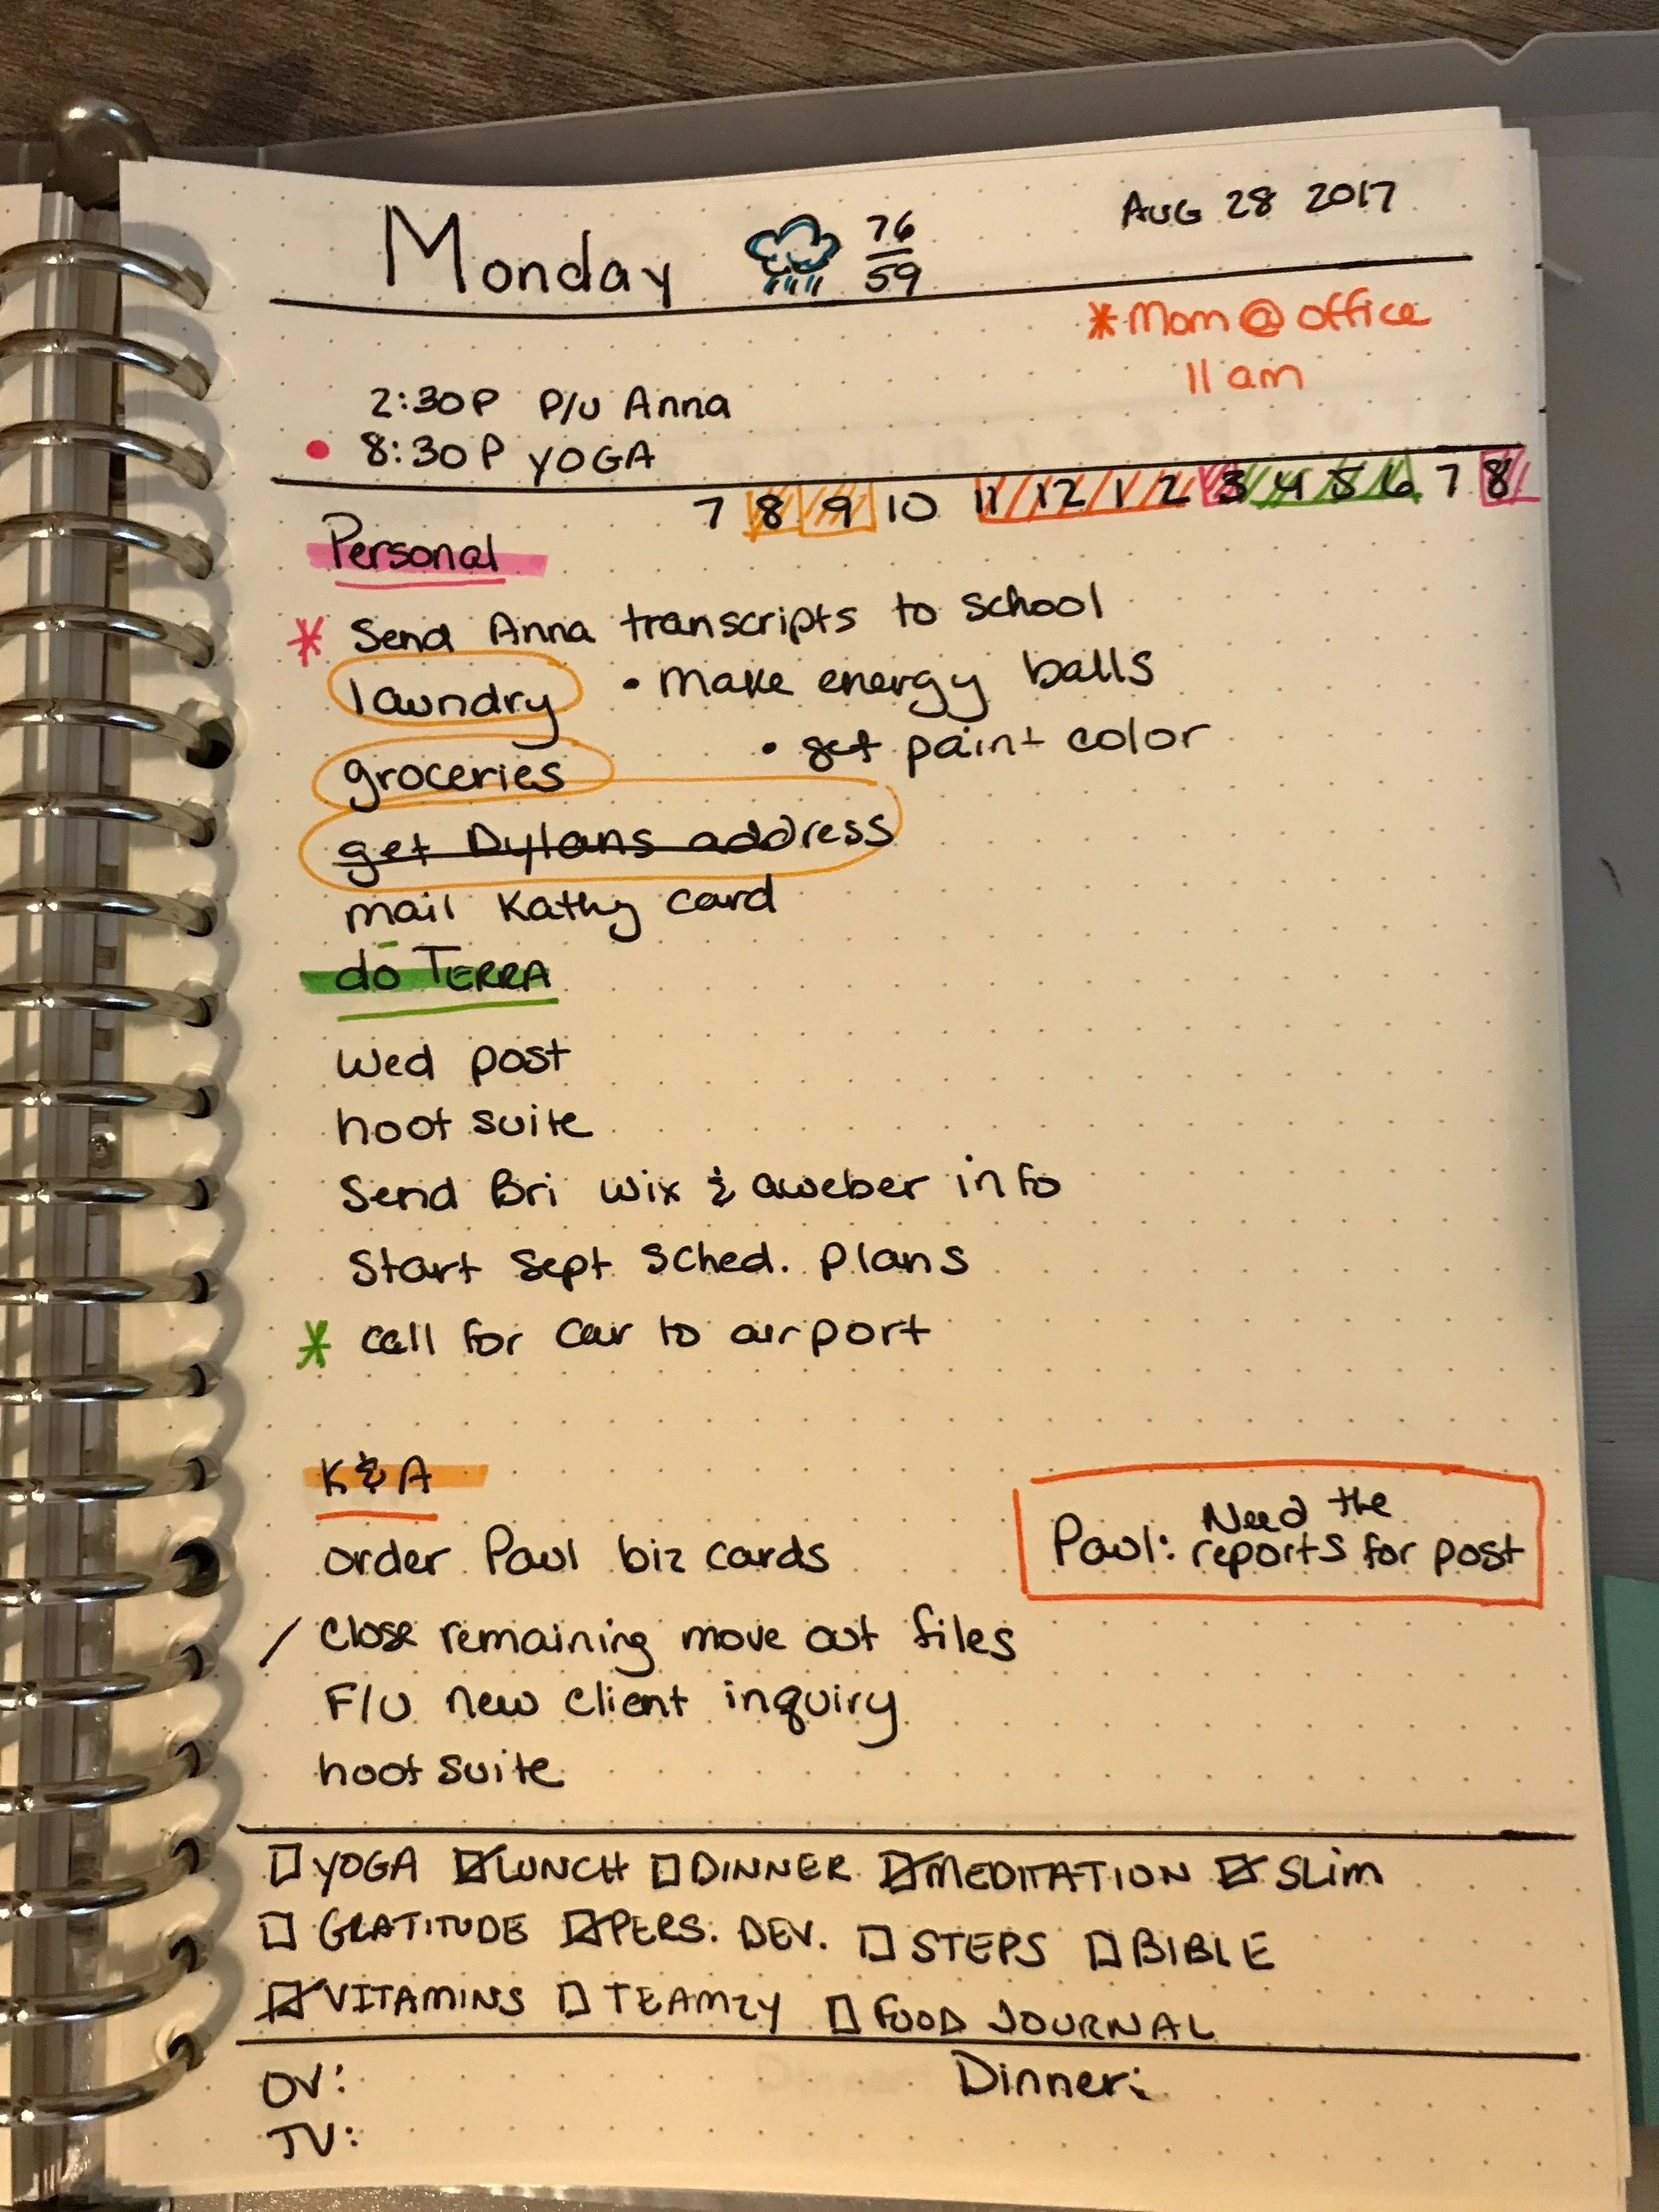 Monday 76/59 AUG 28 2017
*Mom @ office
11 am
2:30P P/U Anna
• 8:30P YOGA
7 8 9 10 11 12 1 2 3 4 5 6 7 8
Personal
* Send Anna transcripts to school
laundry • make energy balls
groceries • get paint color
get Dylans address
mail Kathy card
do TERRA
Wed post
hootsuite
Send Bri Wix & aweber info
Start Sept Sched. plans
* call for car to airport
K & A
order Paul biz cards
Paul: Need the
reports for post
/ Close remaining move out files
F/U new client inquiry
hootsuite
☐ YOGA ☑ LUNCH ☐ DINNER ☑ MEDITATION ☑ SLIM
☐ GRATITUDE ☑ PERS. DEV. ☐ STEPS ☐ BIBLE
☑ VITAMINS ☐ TEAMZY ☐ FOOD JOURNAL
OV: Dinner:
JV: